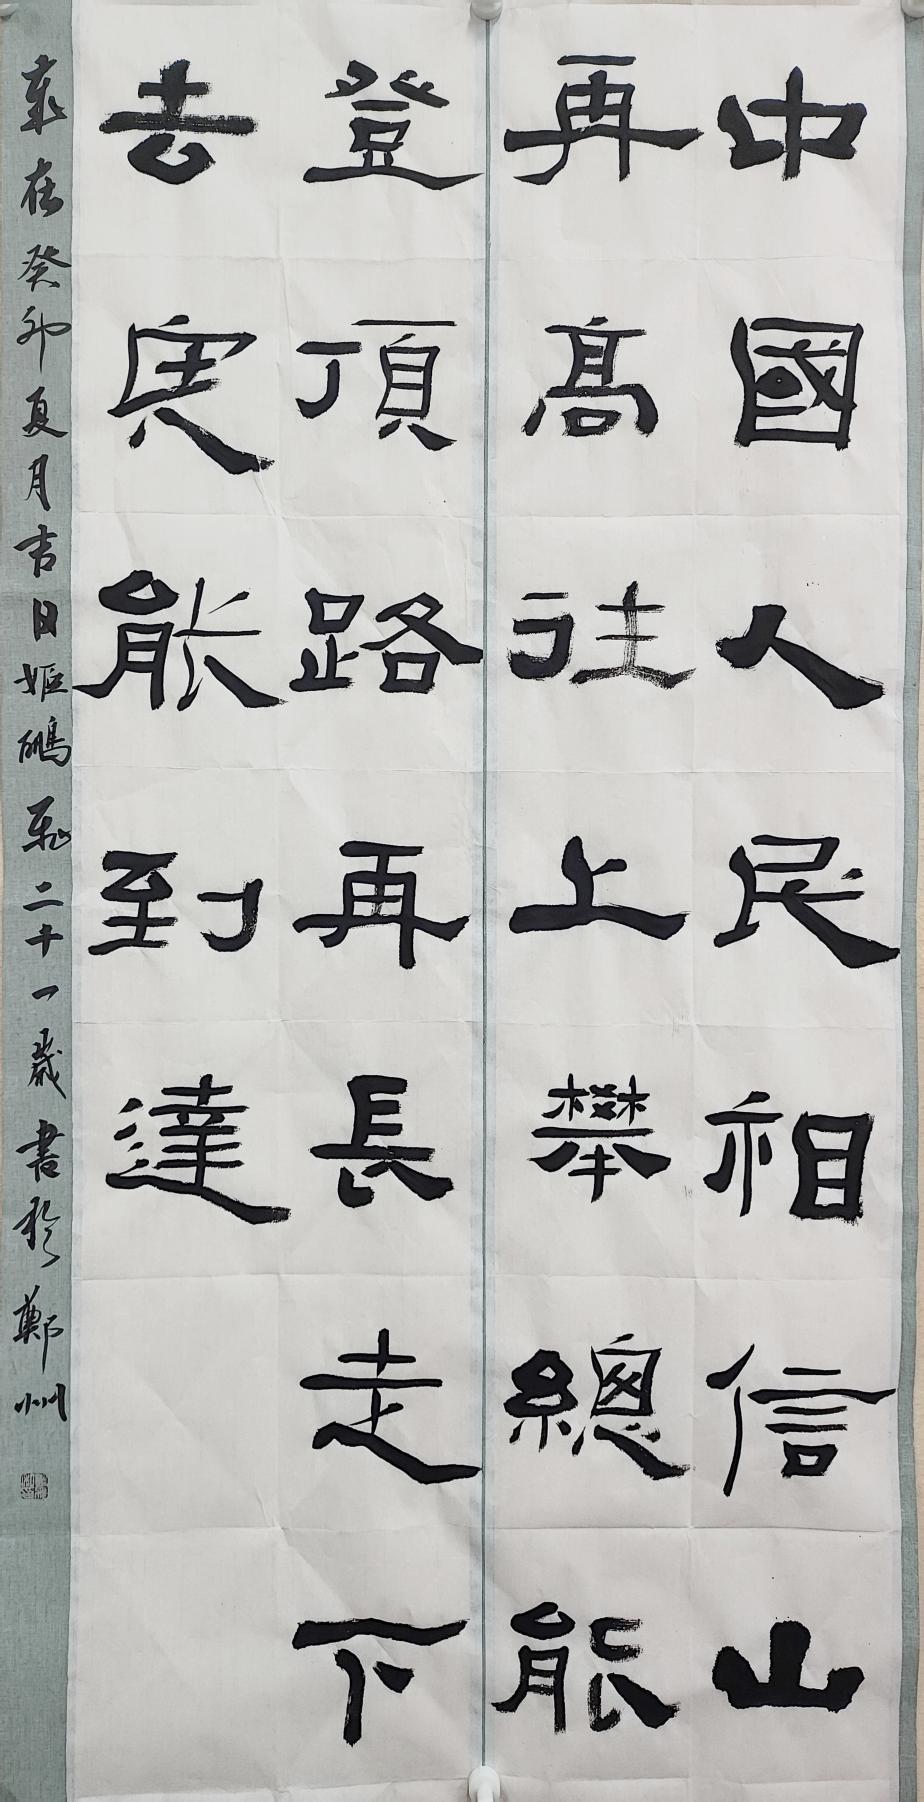 中國人民相信山
再高往上攀總能
登頂路再長走下
去定能到達
歲在癸卯夏月吉日姬鵬飛二十一歲書於鄭州